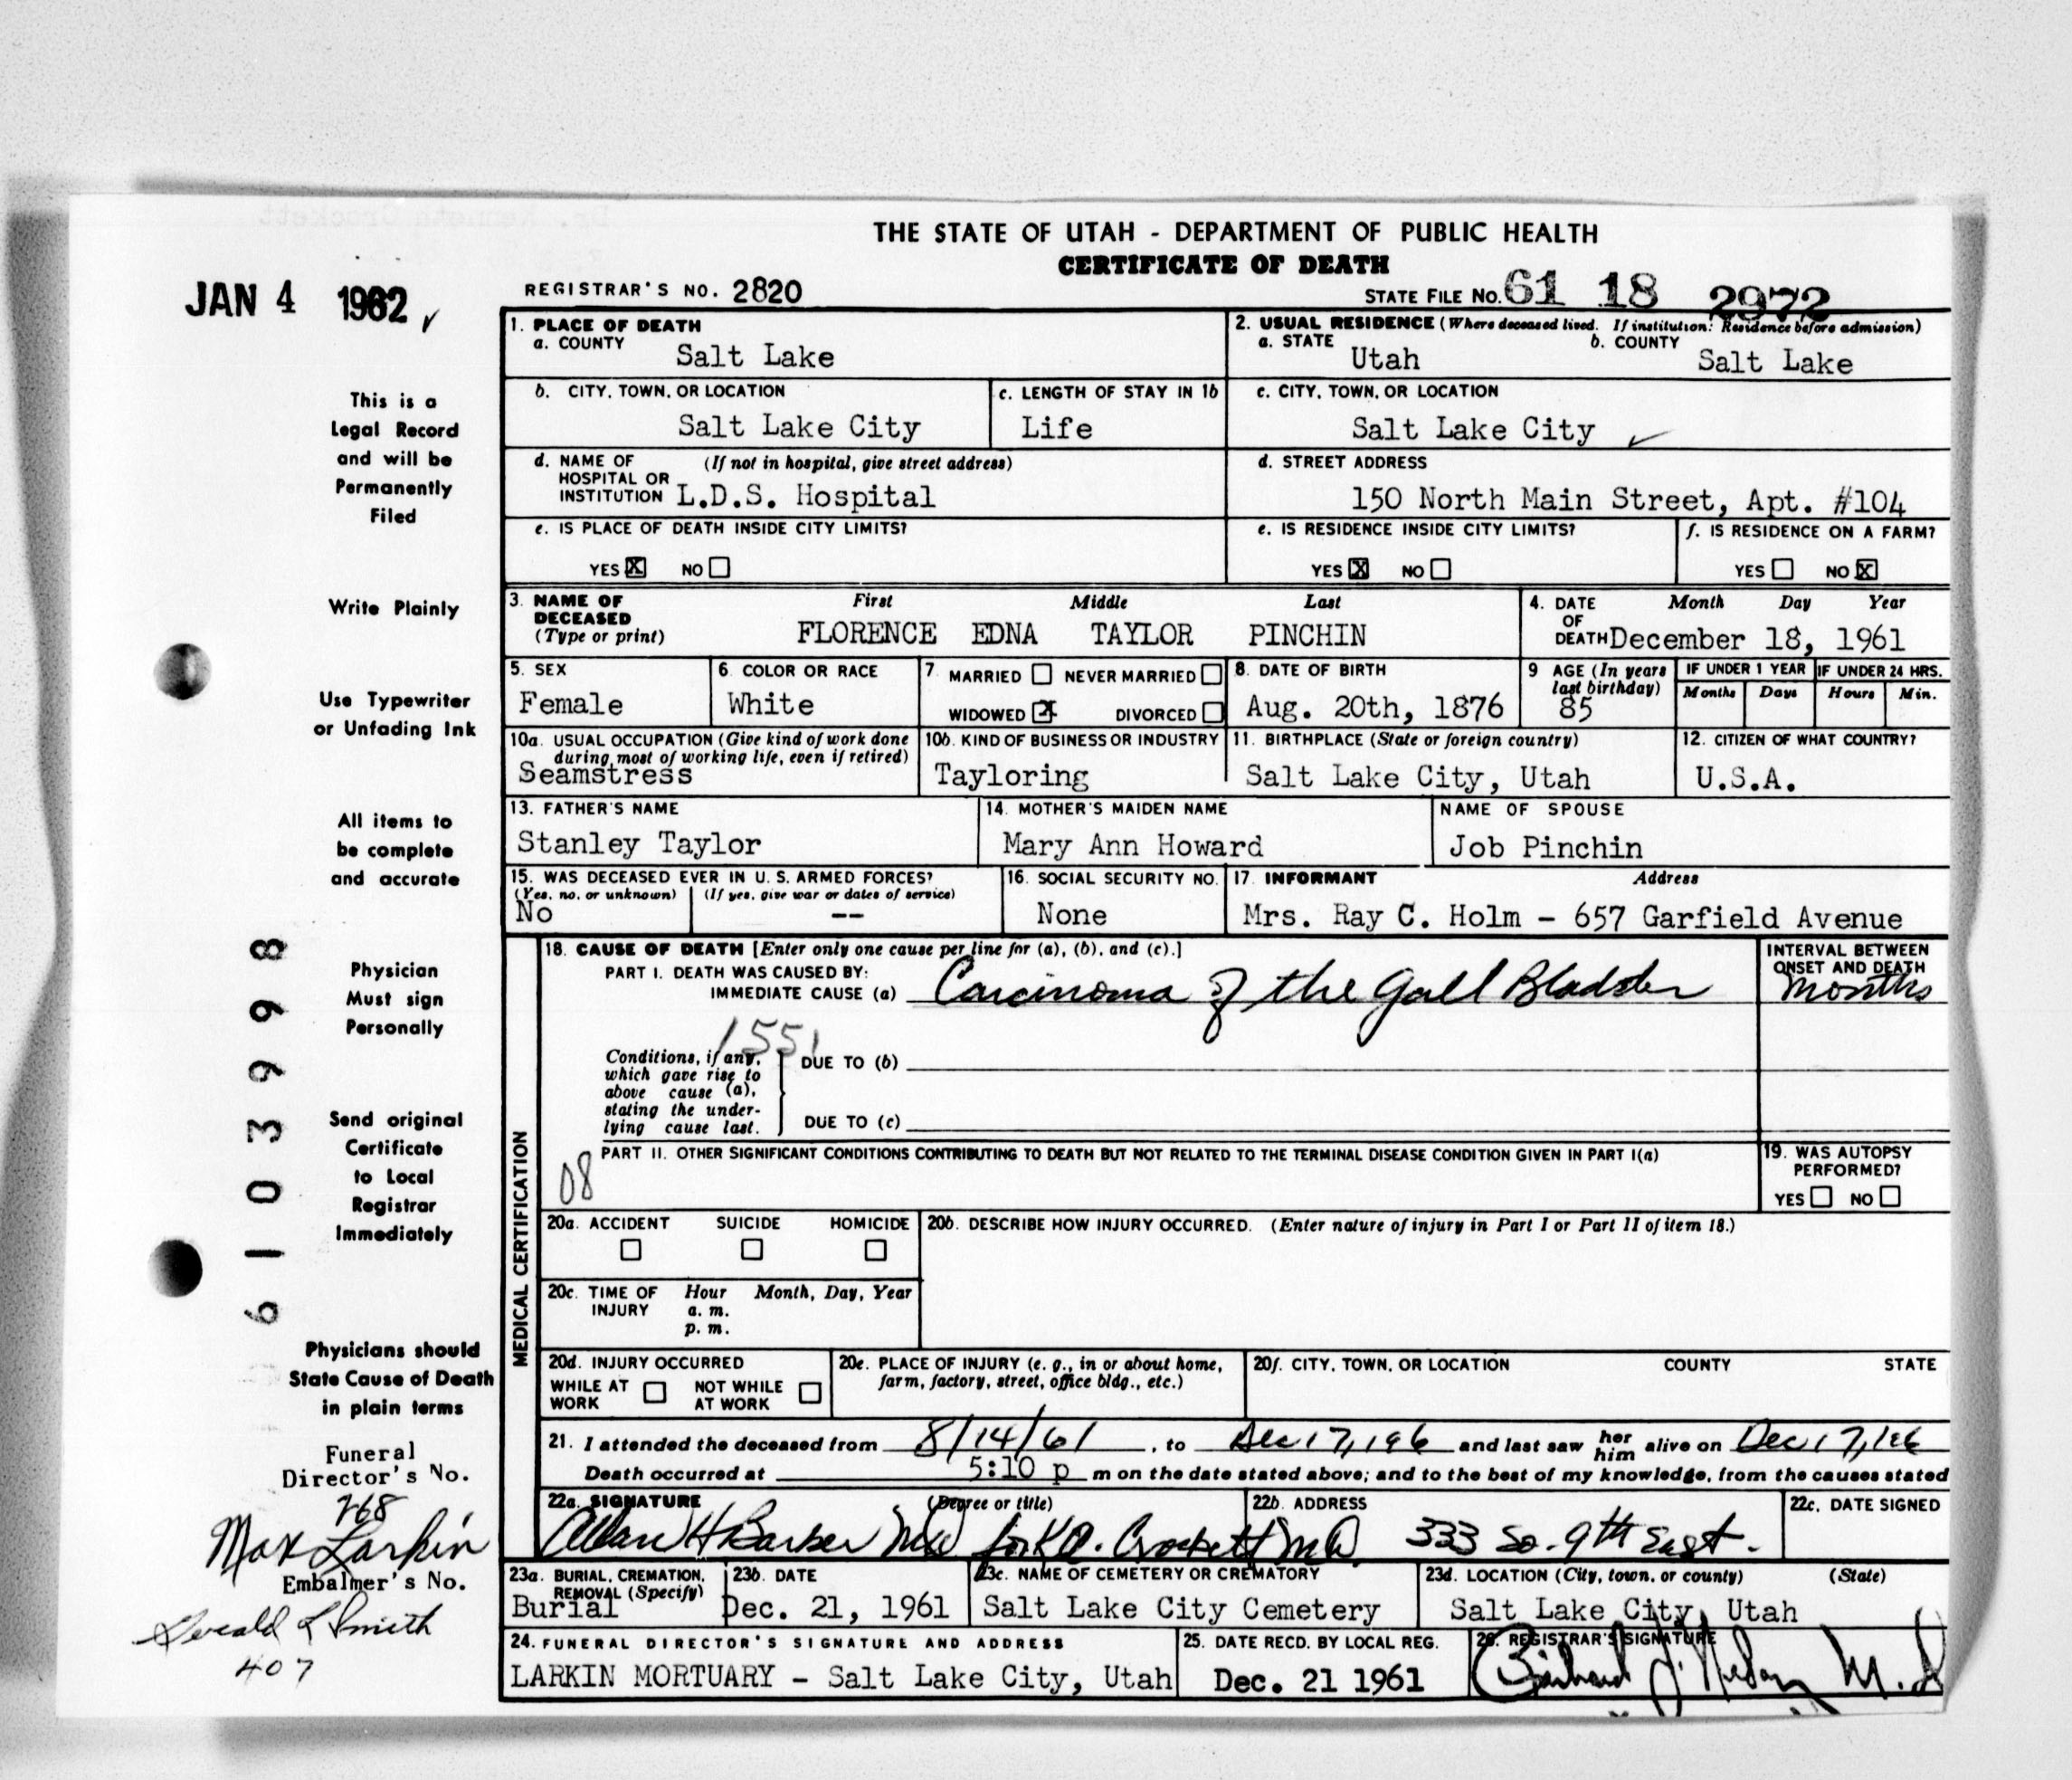 THE STATE OF UTAH - DEPARTMENT OF PUBLIC HEALTH
CERTIFICATE OF DEATH
JAN 4 1962
REGISTRAR'S NO. 2820
STATE FILE NO. 61 18 2972
1. PLACE OF DEATH
a. COUNTY Salt Lake
2. USUAL RESIDENCE (Where deceased lived. If institution: Residence before admission)
a. STATE Utah b. COUNTY Salt Lake
b. CITY, TOWN, OR LOCATION Salt Lake City
c. LENGTH OF STAY IN 1b Life
c. CITY, TOWN, OR LOCATION Salt Lake City
d. NAME OF HOSPITAL OR INSTITUTION (If not in hospital, give street address) L.D.S. Hospital
d. STREET ADDRESS 150 North Main Street, Apt. #104
e. IS PLACE OF DEATH INSIDE CITY LIMITS? YES X NO
e. IS RESIDENCE INSIDE CITY LIMITS? YES X NO
f. IS RESIDENCE ON A FARM? YES NO X
3. NAME OF DECEASED (Type or print) First Middle Last
FLORENCE EDNA TAYLOR PINCHIN
4. DATE OF DEATH Month Day Year
December 18, 1961
5. SEX Female
6. COLOR OR RACE White
7. MARRIED NEVER MARRIED
WIDOWED X DIVORCED
8. DATE OF BIRTH Aug. 20th, 1876
9 AGE (In years last birthday) 85
IF UNDER 1 YEAR Months Days
IF UNDER 24 HRS. Hours Min.
10a. USUAL OCCUPATION (Give kind of work done during most of working life, even if retired) Seamstress
10b. KIND OF BUSINESS OR INDUSTRY Tayloring
11. BIRTHPLACE (State or foreign country) Salt Lake City, Utah
12. CITIZEN OF WHAT COUNTRY? U.S.A.
13. FATHER'S NAME Stanley Taylor
14. MOTHER'S MAIDEN NAME Mary Ann Howard
NAME OF SPOUSE Job Pinchin
15. WAS DECEASED EVER IN U. S. ARMED FORCES?
(Yes, no, or unknown) No (If yes, give war or dates of service) --
16. SOCIAL SECURITY NO. None
17. INFORMANT Address
Mrs. Ray C. Holm - 657 Garfield Avenue
MEDICAL CERTIFICATION
18. CAUSE OF DEATH [Enter only one cause per line for (a), (b), and (c).]
PART I. DEATH WAS CAUSED BY:
IMMEDIATE CAUSE (a) Carcinoma of the Gall Bladder
INTERVAL BETWEEN ONSET AND DEATH
Months
1551
Conditions, if any, which gave rise to above cause (a), stating the underlying cause last.
DUE TO (b)
DUE TO (c)
PART II. OTHER SIGNIFICANT CONDITIONS CONTRIBUTING TO DEATH BUT NOT RELATED TO THE TERMINAL DISEASE CONDITION GIVEN IN PART I(a)
08
19. WAS AUTOPSY PERFORMED?
YES NO
20a. ACCIDENT SUICIDE HOMICIDE
20b. DESCRIBE HOW INJURY OCCURRED. (Enter nature of injury in Part I or Part II of item 18.)
20c. TIME OF INJURY Hour Month, Day, Year
a. m.
p. m.
20d. INJURY OCCURRED
WHILE AT WORK NOT WHILE AT WORK
20e. PLACE OF INJURY (e. g., in or about home, farm, factory, street, office bldg., etc.)
20f. CITY, TOWN, OR LOCATION COUNTY STATE
21. I attended the deceased from 8/14/61, to Dec 17, 196 and last saw her him alive on Dec 17, 196
Death occurred at 5:10 p m on the date stated above; and to the best of my knowledge, from the causes stated
22a. SIGNATURE (Degree or title)
Allan H Barker MD for K.A. Crockett MD
22b. ADDRESS 333 So. 9th East.
22c. DATE SIGNED
23a. BURIAL, CREMATION, REMOVAL (Specify) Burial
23b. DATE Dec. 21, 1961
23c. NAME OF CEMETERY OR CREMATORY Salt Lake City Cemetery
23d. LOCATION (City, town, or county) (State)
Salt Lake City, Utah
24. FUNERAL DIRECTOR'S SIGNATURE AND ADDRESS
LARKIN MORTUARY - Salt Lake City, Utah
25. DATE RECD. BY LOCAL REG. Dec. 21 1961
26. REGISTRAR'S SIGNATURE
M.D
This is a
Legal Record
and will be
Permanently
Filed
Write Plainly
Use Typewriter
or Unfading Ink
All items to
be complete
and accurate
Physician
Must sign
Personally
Send original
Certificate
to Local
Registrar
Immediately
Physicians should
State Cause of Death
in plain terms
61039998
Funeral
Director's No.
268
Max Larkin
Embalmer's No.
Gerald L Smith
407